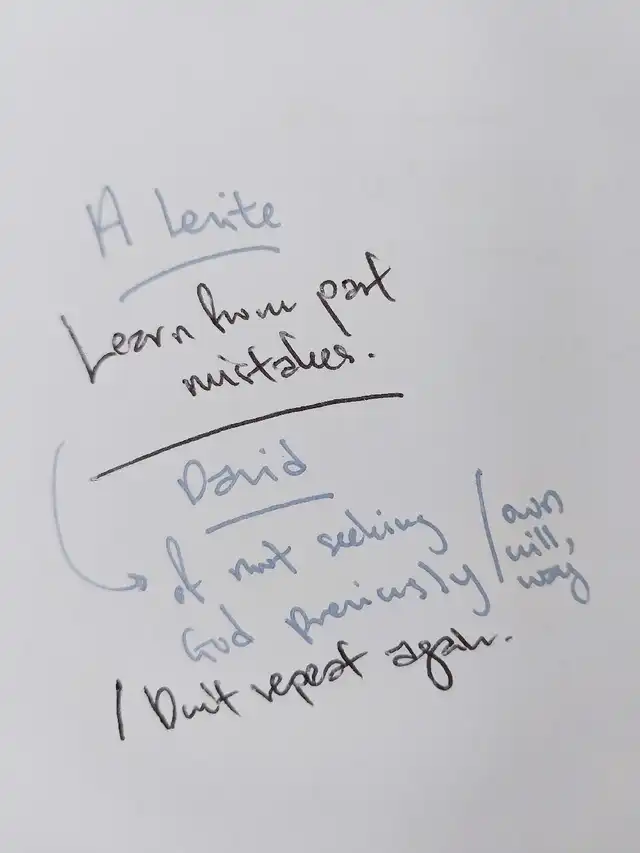 A Levite
Learn from past
mistakes.
David
of not seeking
God previously / own
will,
way
/ Don't repeat again.